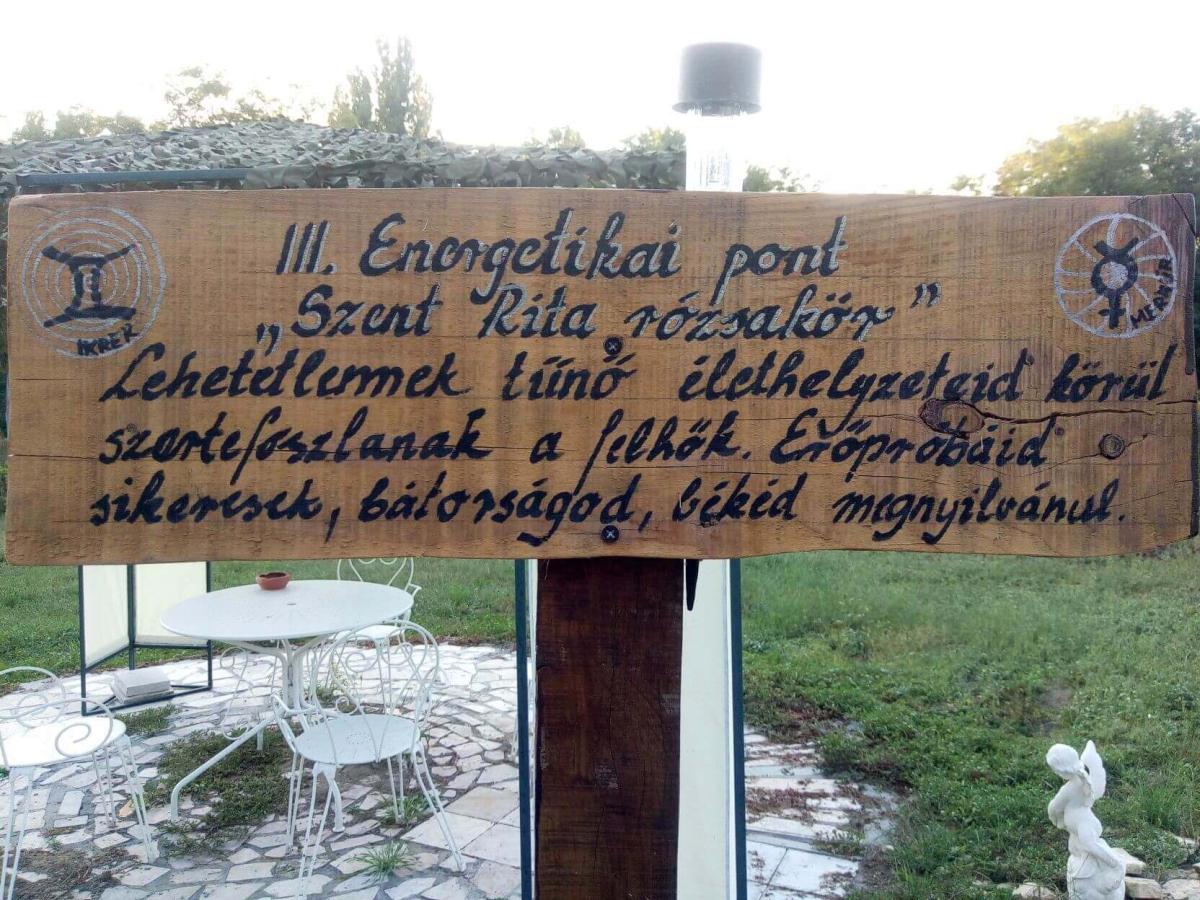 III. Energetikai pont
„Szent Rita rózsakör”
Lehetetlennek tűnő élethelyzeteid körül
szertefoszlanak a felhők. Erőpróbáid
sikeresek, bátorságod, békéd megnyilvánul.
IKREK
MERKÚR